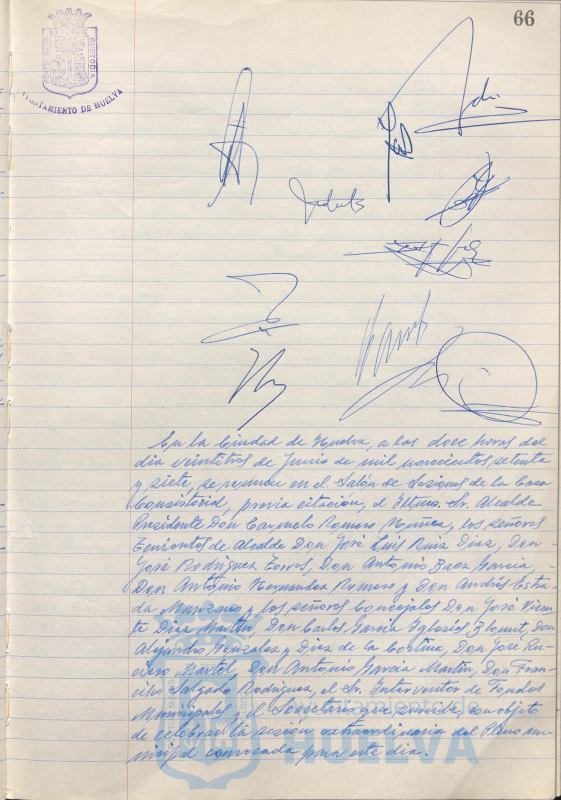 66
AYUNTAMIENTO DE HUELVA
En la Ciudad de Huelva, a las doce horas del
dia veintitres de Junio de mil novecientos setenta
y siete, se reunen en el Salón de Sesiones de la Casa
Consistorial, previa citación, el Iltmo. Sr. Alcalde
Presidente Don Carmelo Romero Núñez, los señores
Tenientes de Alcalde Don José Luis Ruiz Diaz, Don
José Rodriguez Torres, Don Antonio Baez Garcia,
Don Antonio Hernandez Romero y Don Andrés Estra-
da Manzano y los señores Concejales Don José Vicen-
te Diaz Martin, Don Carlos Garcia Iglesias Flomit, Don
Alejandro Gonzalez y Diez de la Cortina, Don José Ru-
Martel, Don Antonio Garcia Martin, Don Fran-
cisco Salgado Rodriguez, el Sr. Interventor de Fondos
Municipales y el Secretario que suscribe, con objeto
de celebrar la sesión extraordinaria del Pleno mu-
nicipal convocada para este dia.
Ayuntamiento de
HUELVA